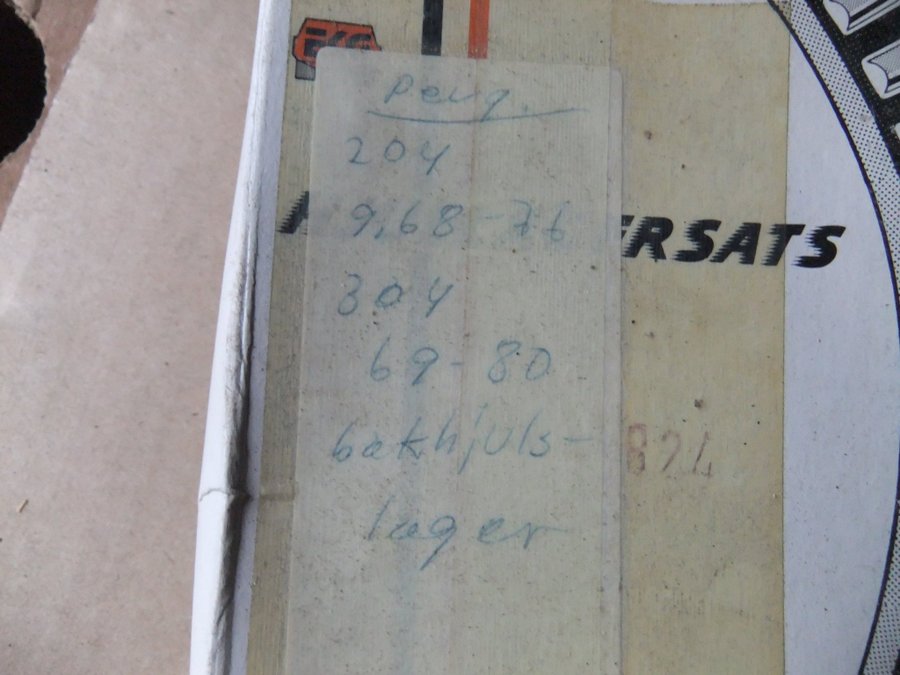 Peug.
204
9,68-76
ERSATS
304
69-80
bakhjuls-
824
lager